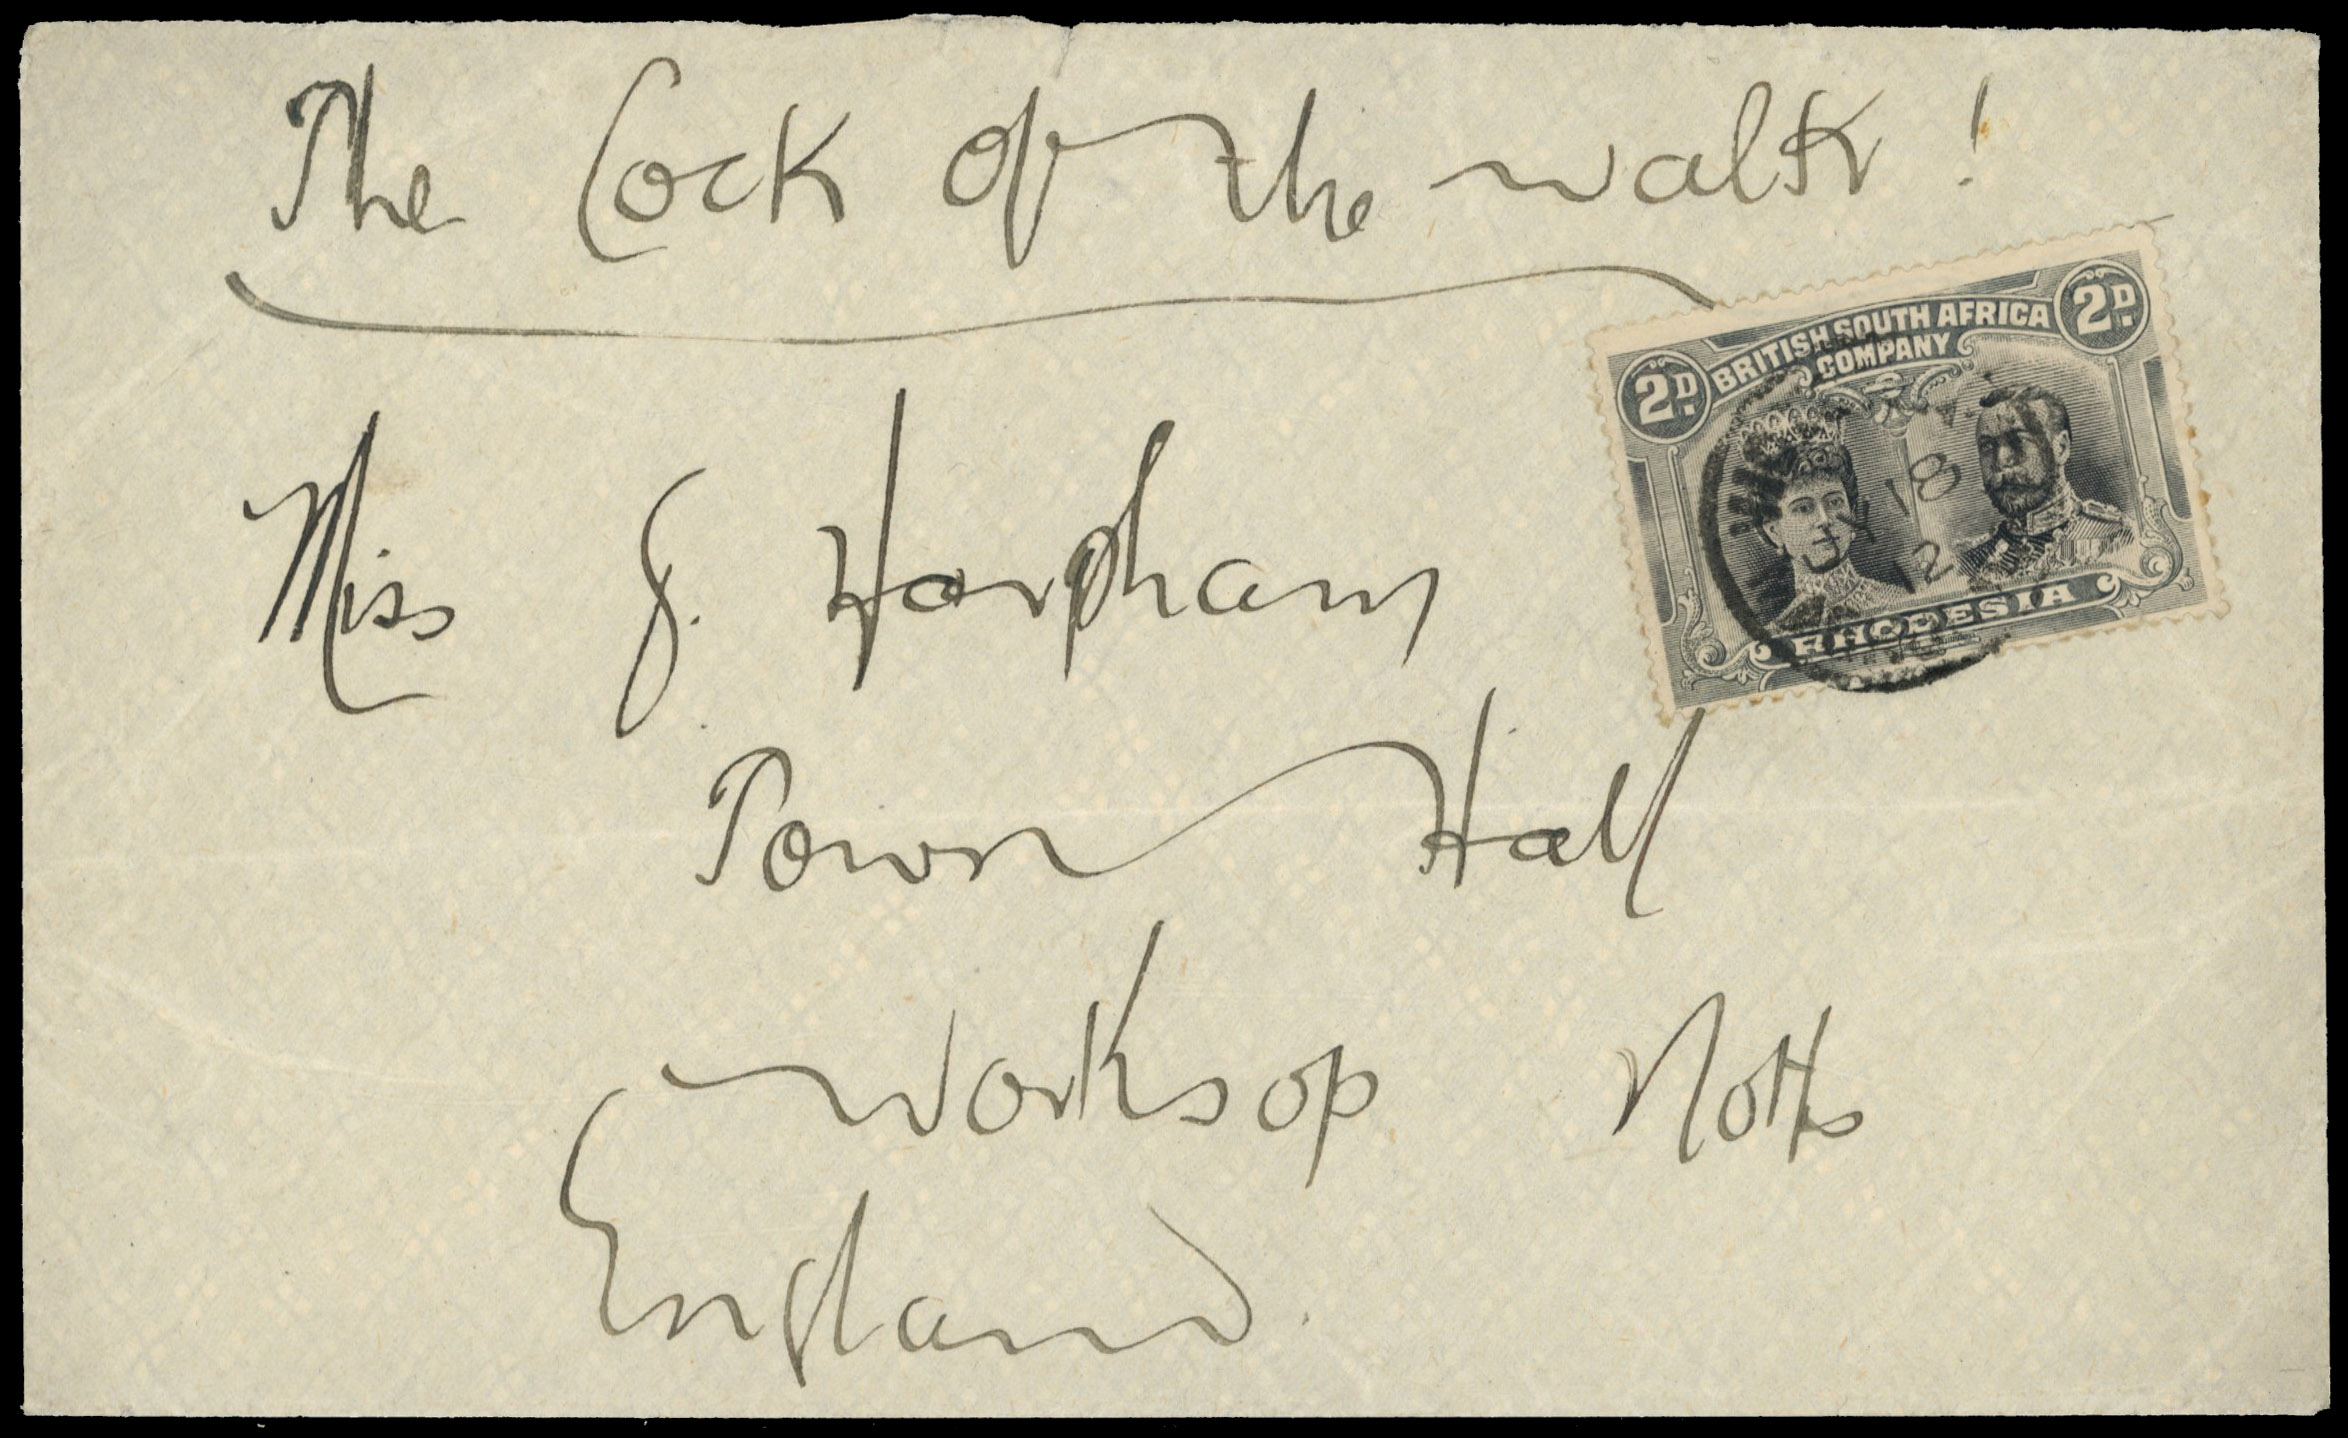 The Cock of the walk!
Miss J. Harpham
Town Hall
Worksop Notts
England.
2D. BRITISH SOUTH AFRICA 2D.
COMPANY
18
12
RHODESIA